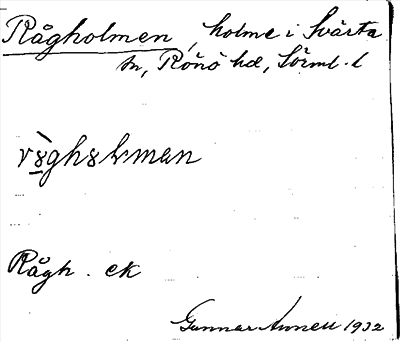 Rågholmen, holme i Svärta
sn, Rönö hd, Sörml. l
Rågh. ek
Gunnar Annell 1932